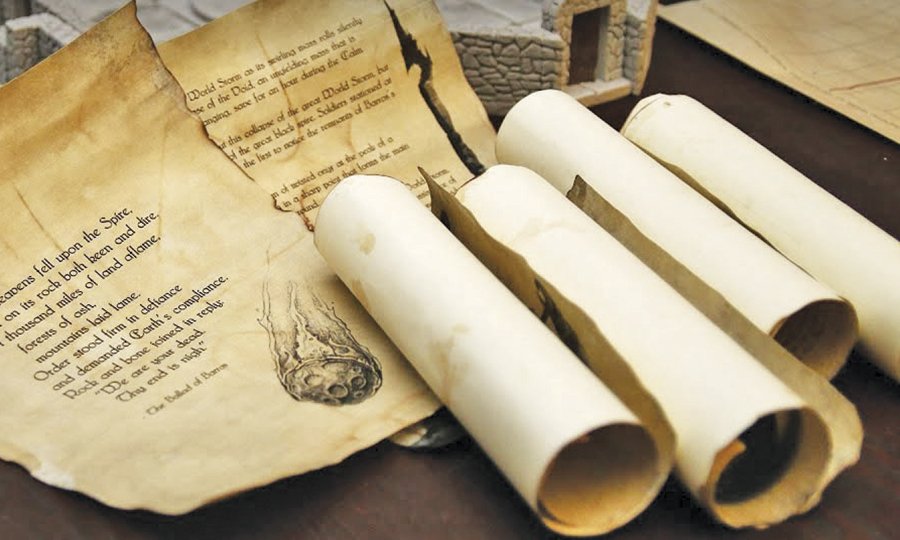 World Storm as its swirling mass rolls silently
of the Void, an unyielding mass that is
save for an hour during the Calm
this collapse of the great World Storm, but
the great black spire. Soldiers stationed at
the first to notice the remnants of Barros's
of twisted onyx at the peak of a
in a sharp point that forms the main
fell upon the Spire,
on its rock both been and dire,
thousand miles of land aflame,
forests of ash,
mountains laid lame.
Order stood firm in defiance
and demanded Earth's compliance.
Rock and bone joined in reply:
"We are your dead.
Thy end is nigh."
- The Ballad of Barros